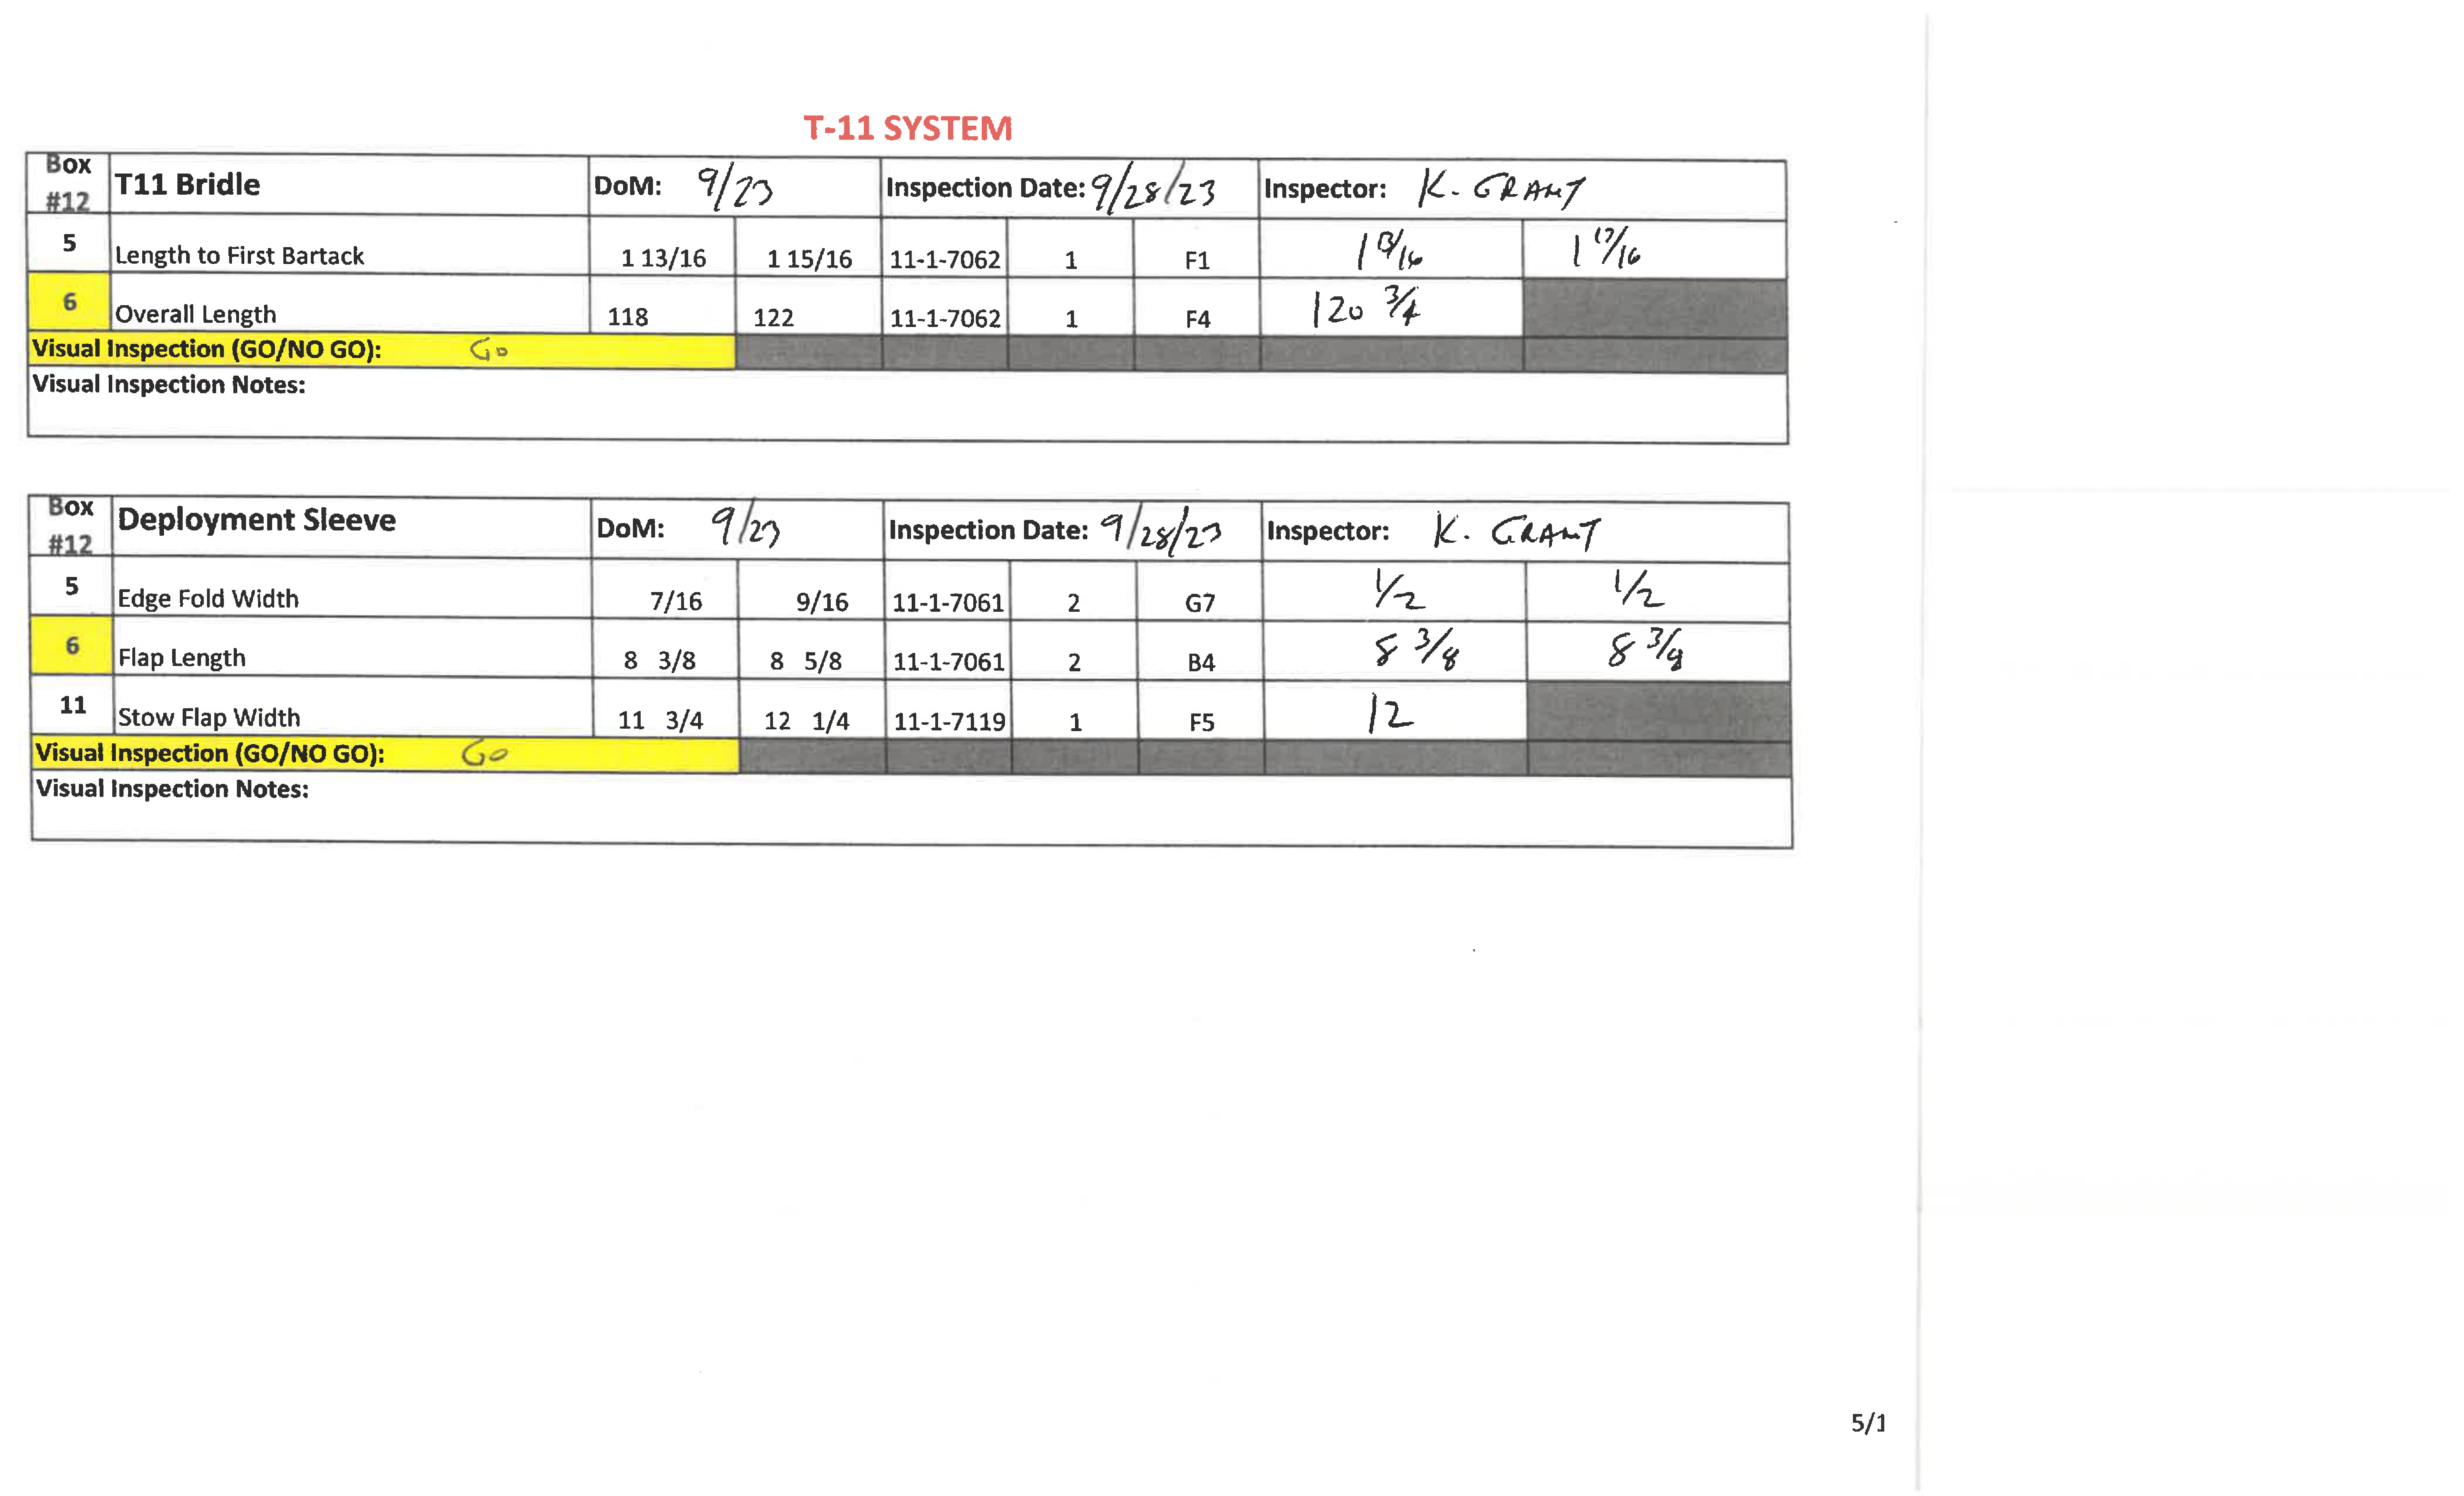 T-11 SYSTEM
Box #12 T11 Bridle DoM: 9/23 Inspection Date: 9/28/23 Inspector: K. GRANT
5 Length to First Bartack 1 13/16 1 15/16 11-1-7062 1 F1 1 13/16 1 13/16
6 Overall Length 118 122 11-1-7062 1 F4 120 3/4
Visual Inspection (GO/NO GO): GO
Visual Inspection Notes:
Box #12 Deployment Sleeve DoM: 9/23 Inspection Date: 9/28/23 Inspector: K. GRANT
5 Edge Fold Width 7/16 9/16 11-1-7061 2 G7 1/2 1/2
6 Flap Length 8 3/8 8 5/8 11-1-7061 2 B4 8 3/8 8 3/8
11 Stow Flap Width 11 3/4 12 1/4 11-1-7119 1 F5 12
Visual Inspection (GO/NO GO): GO
Visual Inspection Notes:
5/1